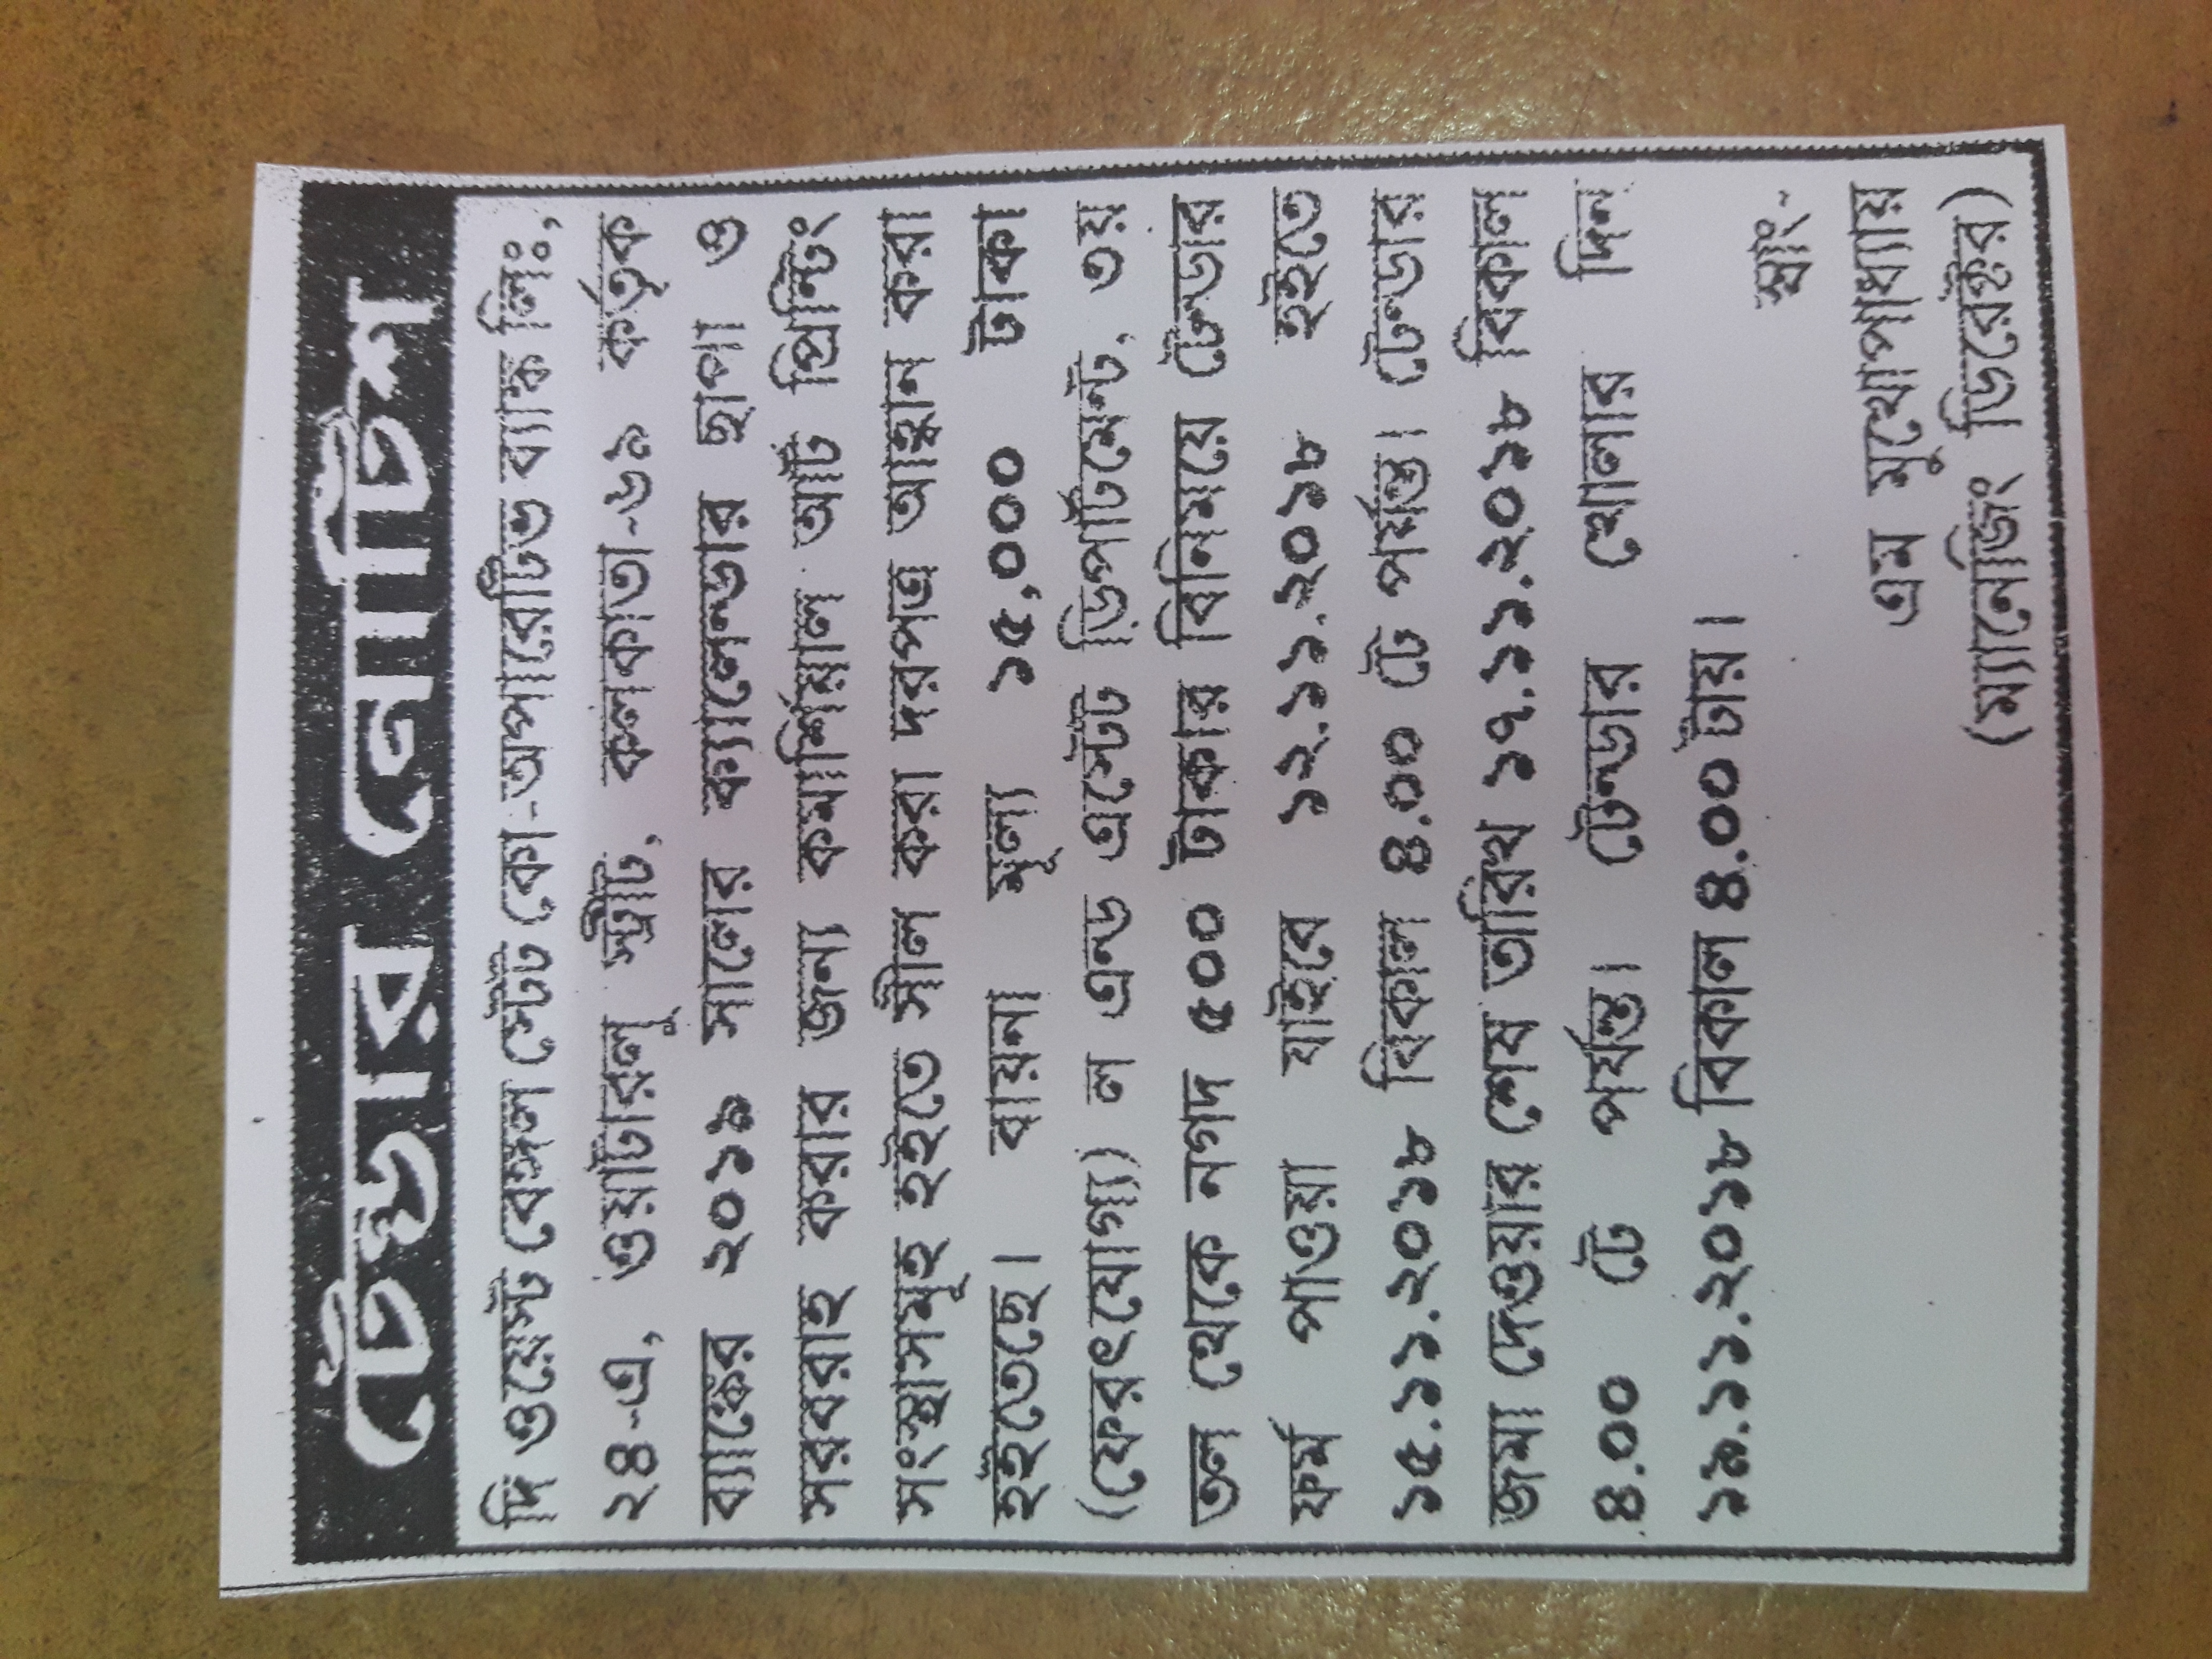 টেন্ডার নোটিশ
দি ওয়েস্ট বেঙ্গল স্টেট কো-অপারেটিভ ব্যাঙ্ক লিঃ,
২৪-এ, ওয়াটারলু স্ট্রীট, কলকাতা-৬৯ কর্তৃক
ব্যাঙ্কের ২০১৯ সালের ক্যালেন্ডার ছাপা ও
সরবরাহ করার জন্য কমার্শিয়াল আর্ট প্রিন্টিং
সংস্থাসমূহ হইতে সীল করা দরপত্র আহ্বান করা
হইতেছে। বায়না মূল্য ১৫,০০০ টাকা
(ফেরৎযোগ্য) ল এন্ড এস্টেট ডিপার্টমেন্ট, ৩য়
তল থেকে নগদ ৫০০ টাকার বিনিময়ে টেন্ডার
ফর্ম পাওয়া যাইবে ১২.১১.২০১৮ হইতে
১৫.১১.২০১৮ বিকাল ৪.০০ টে পর্যন্ত। টেন্ডার
জমা দেওয়ার শেষ তারিখ ১৭.১১.২০১৮ বিকাল
৪.০০ টে পর্যন্ত। টেন্ডার খোলার দিন
১৯.১১.২০১৮ বিকাল ৪.০০ টায়।
স্বাঃ-
এম মুখোপাধ্যায়
(ম্যানেজিং ডিরেক্টর)